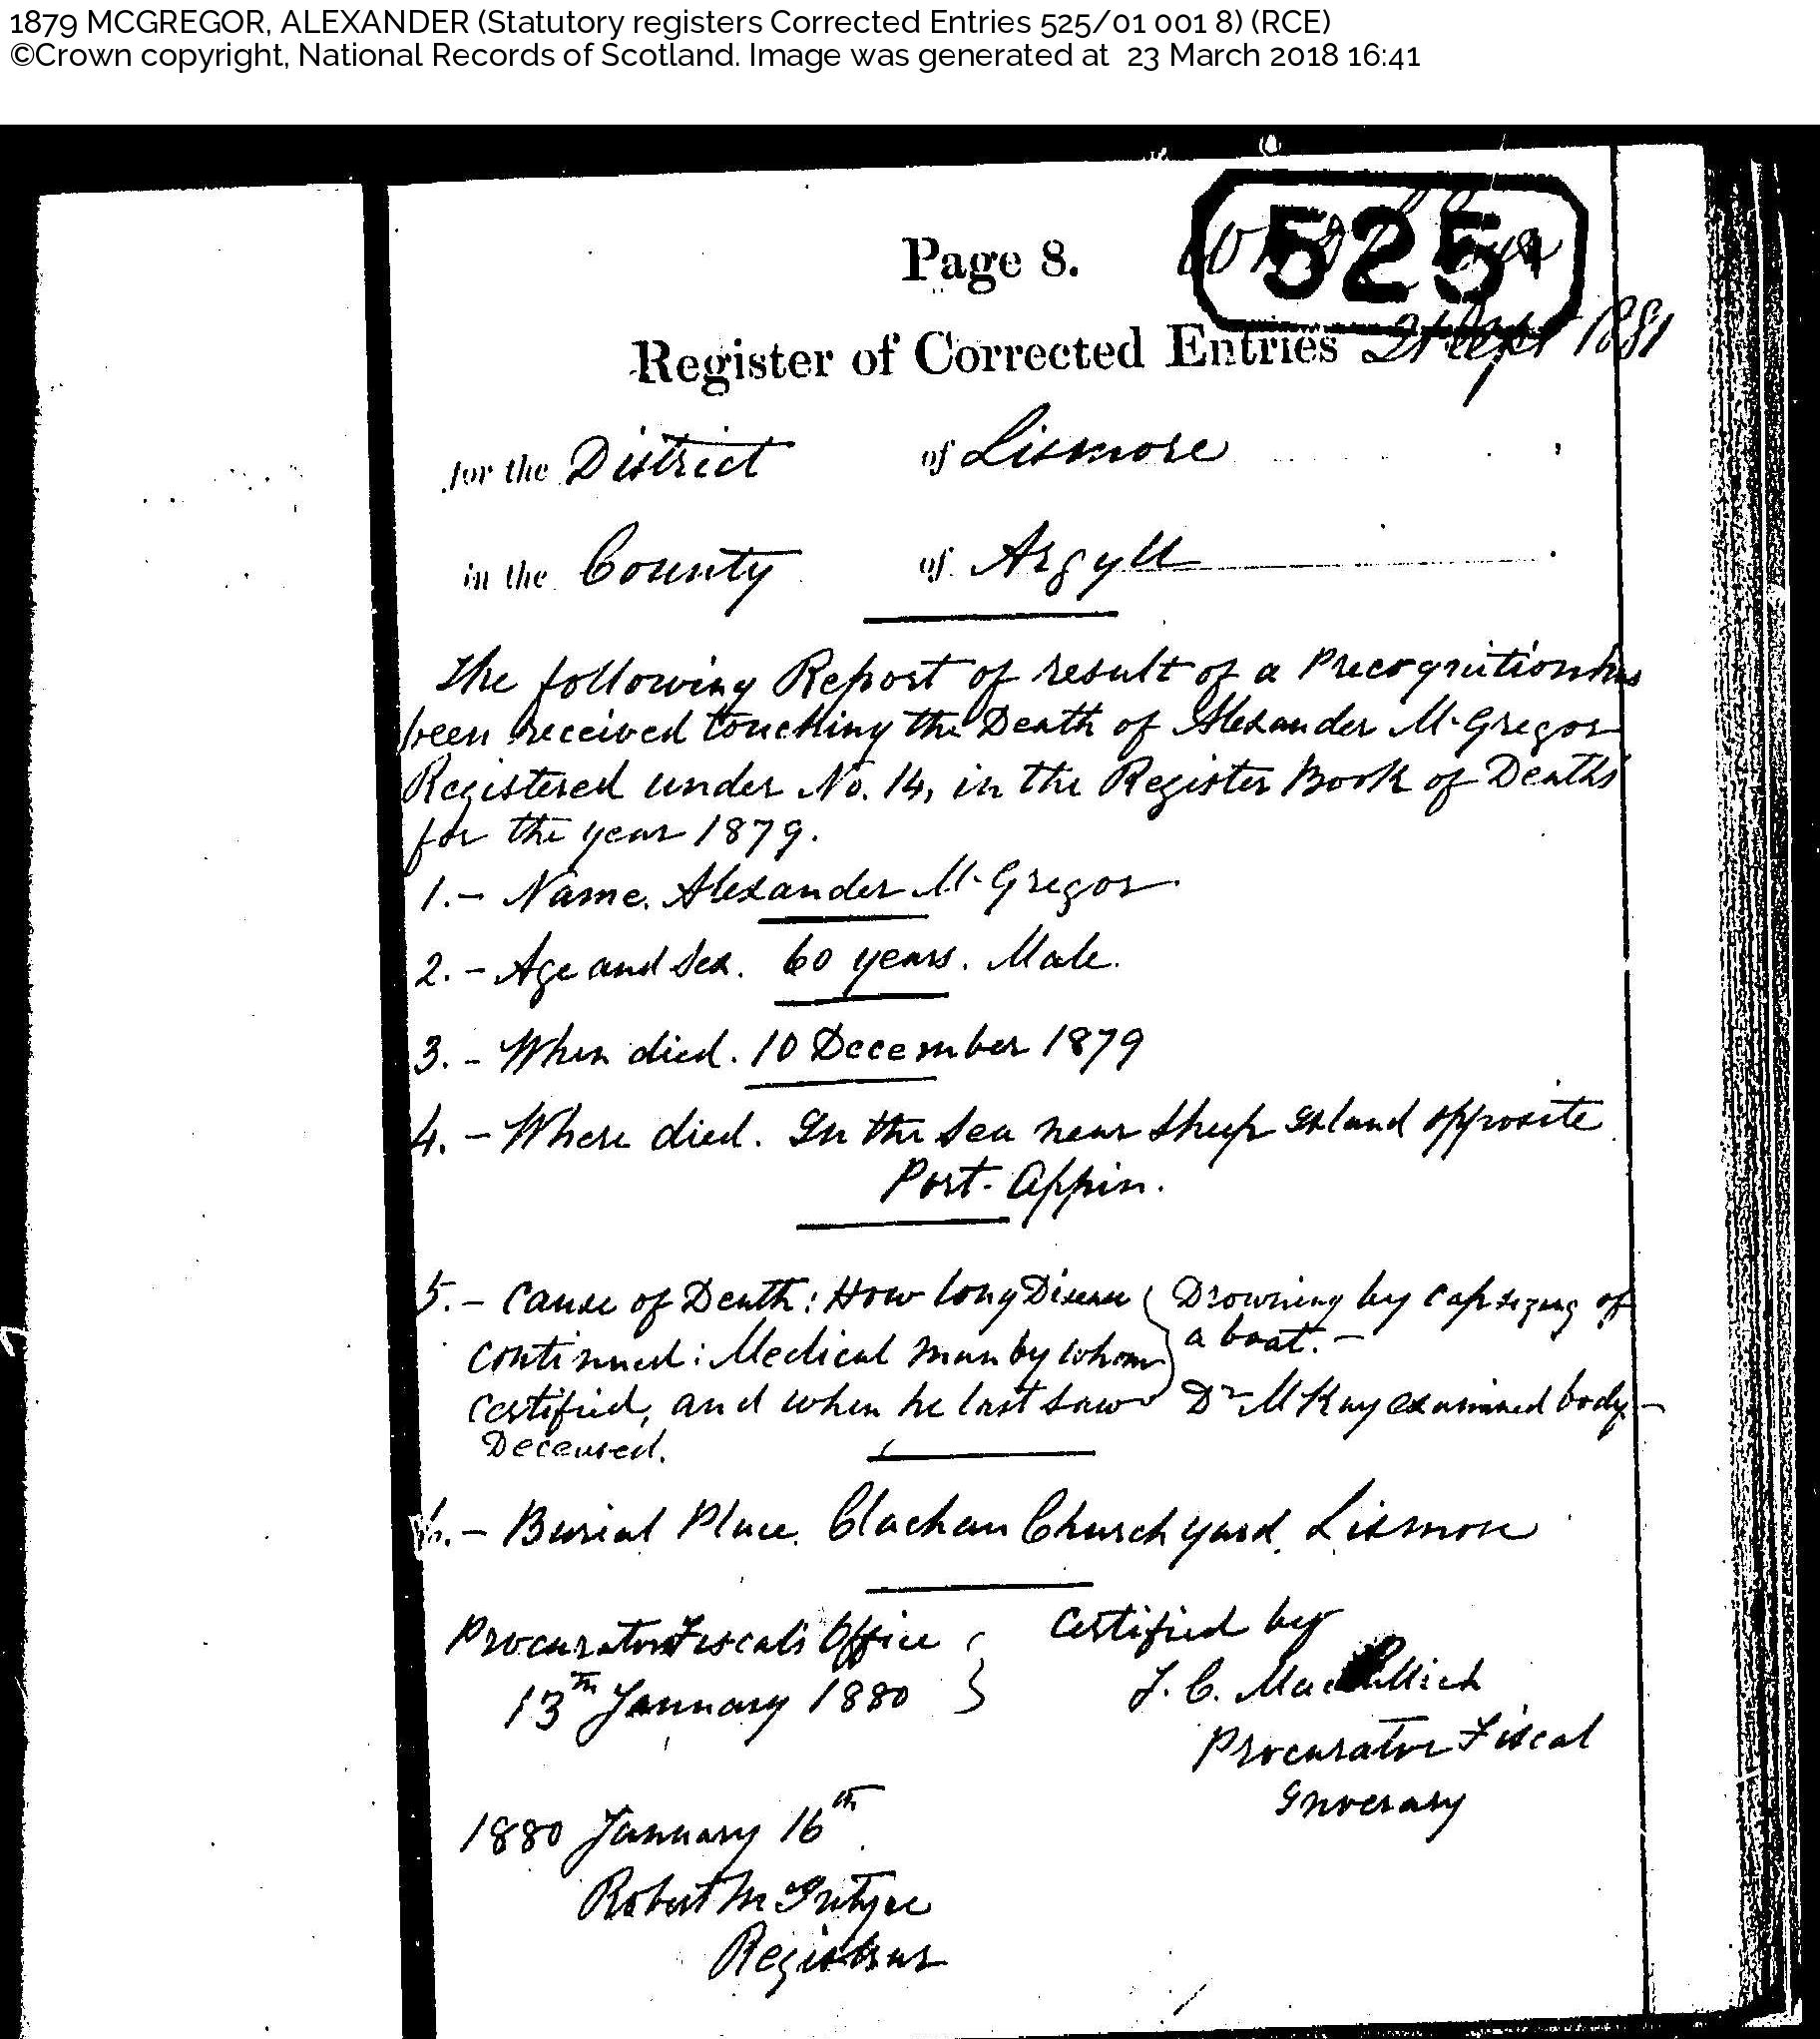 1879 MCGREGOR, ALEXANDER (Statutory registers Corrected Entries 525/01 001 8) (RCE)
©Crown copyright, National Records of Scotland. Image was generated at 23 March 2018 16:41
Page 8.
525
Register of Corrected Entries
21 Sept 1881
for the District of Lismore
in the County of Argyll
The following Report of result of a Precognition has
been received touching the Death of Alexander McGregor
Registered under No. 14, in the Register Book of Deaths
for the year 1879.
1.- Name. Alexander McGregor
2.- Age and Sex. 60 years. Male.
3.- When died. 10 December 1879
4.- Where died. In the Sea near Sheep Island opposite
Port-Appin.
5.- Cause of Death: How long Disease Drowning by capsizing of
continued: Medical man by whom a boat.-
certified, and when he last saw Dr McKay examined body-
Deceased.
6.- Burial Place. Clachan Churchyard, Lismore
Procurator Fiscal's Office Certified by
13th January 1880 J. C. Mac
Procurator Fiscal
Inverary
1880 January 16th
Robert McIntyre
Registrar